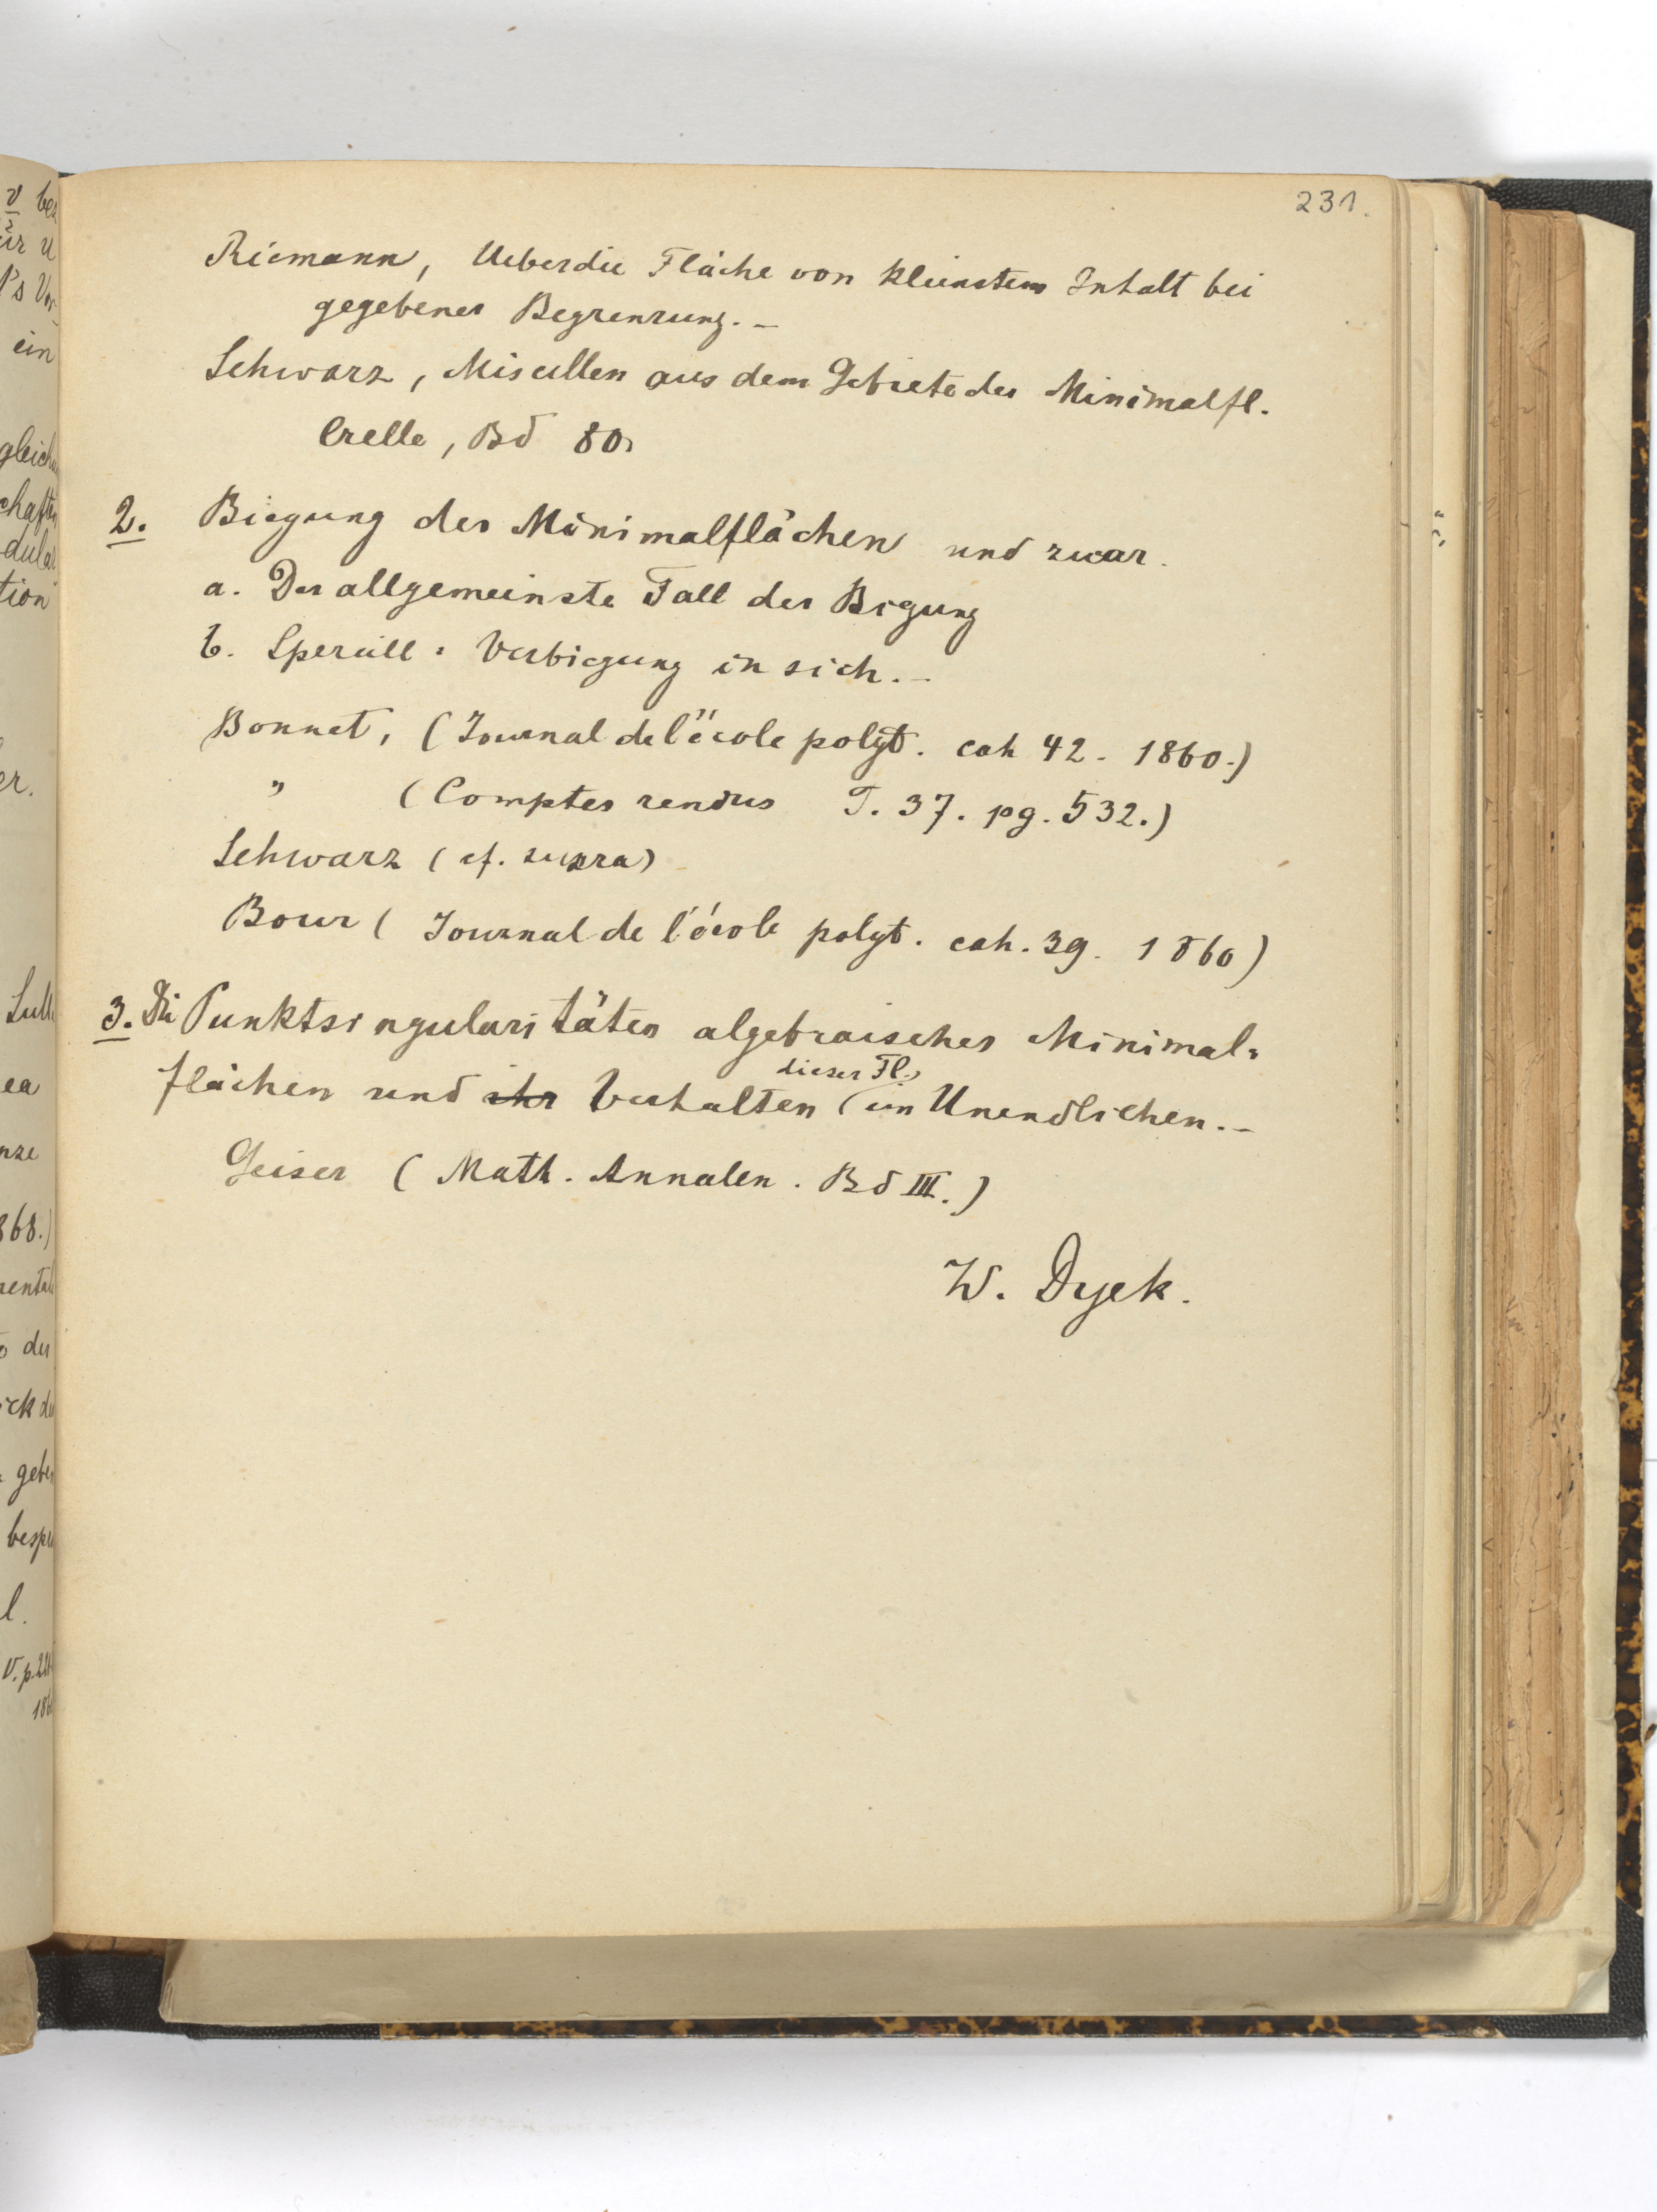 231.
Riemann, Ueber die Fläche von kleinstem Inhalt bei
gegebener Begrenzung. –
Schwarz, Miscellen aus dem Gebiete der Minimalfl.
Crelle, Bd 80.
2. Biegung der Minimalflächen und zwar.
a. Der allgemeinste Fall der Biegung
b. Speciell: Verbiegung in sich. –
Bonnet, (Journal de l'école polyt. cah 42. 1860.)
" (Comptes rendus T. 37. pg. 532.)
Schwarz (cf. supra)
Bour (Journal de l'école polyt. cah. 39. 1860)
3. Die Punktsingularitäten algebraischer Minimal-
dieser Fl.
flächen und ihr Verhalten im Unendlichen. –
Geiser (Math. Annalen. Bd III.)
W. Dyck.